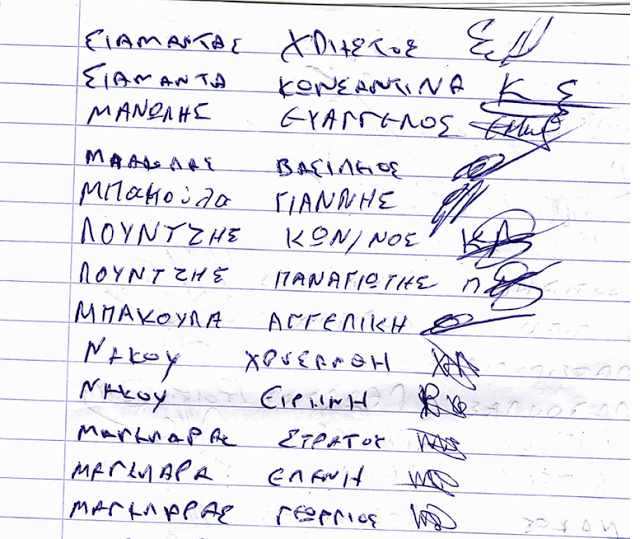 ΣΙΑΜΑΝΤΑΣ ΧΡΗΣΤΟΣ
ΣΙΑΜΑΝΤΑ ΚΩΝΣΑΝΤΙΝΑ Κ Σ
ΜΑΝΩΛΗΣ ΕΥΑΓΓΕΛΟΣ
ΒΑΣΙΛΗΟΣ
ΜΠακούλα ΓΙΑΝΝΗΣ
ΛΟΥΝΤΖΗΣ ΚΩΝ/ΝΟΣ
ΛΟΥΝΤΖΗΣ ΠΑΝΑΓΙΩΤΗΣ
ΜΠΑΚΟΥΛΑ ΑΓΓΕΛΙΚΗ
ΝΑΚΟΥ
ΝΑΚΟΥ ΕΙΡΗΝΗ
ΜΑΓΚΛΑΡΑΣ ΣΤΡΑΤΟΥ
ΜΑΓΚΛΑΡΑ ΕΛΕΝΗ
ΜΑΓΚΛΑΡΑΣ ΓΕΩΡΓΙΟΣ